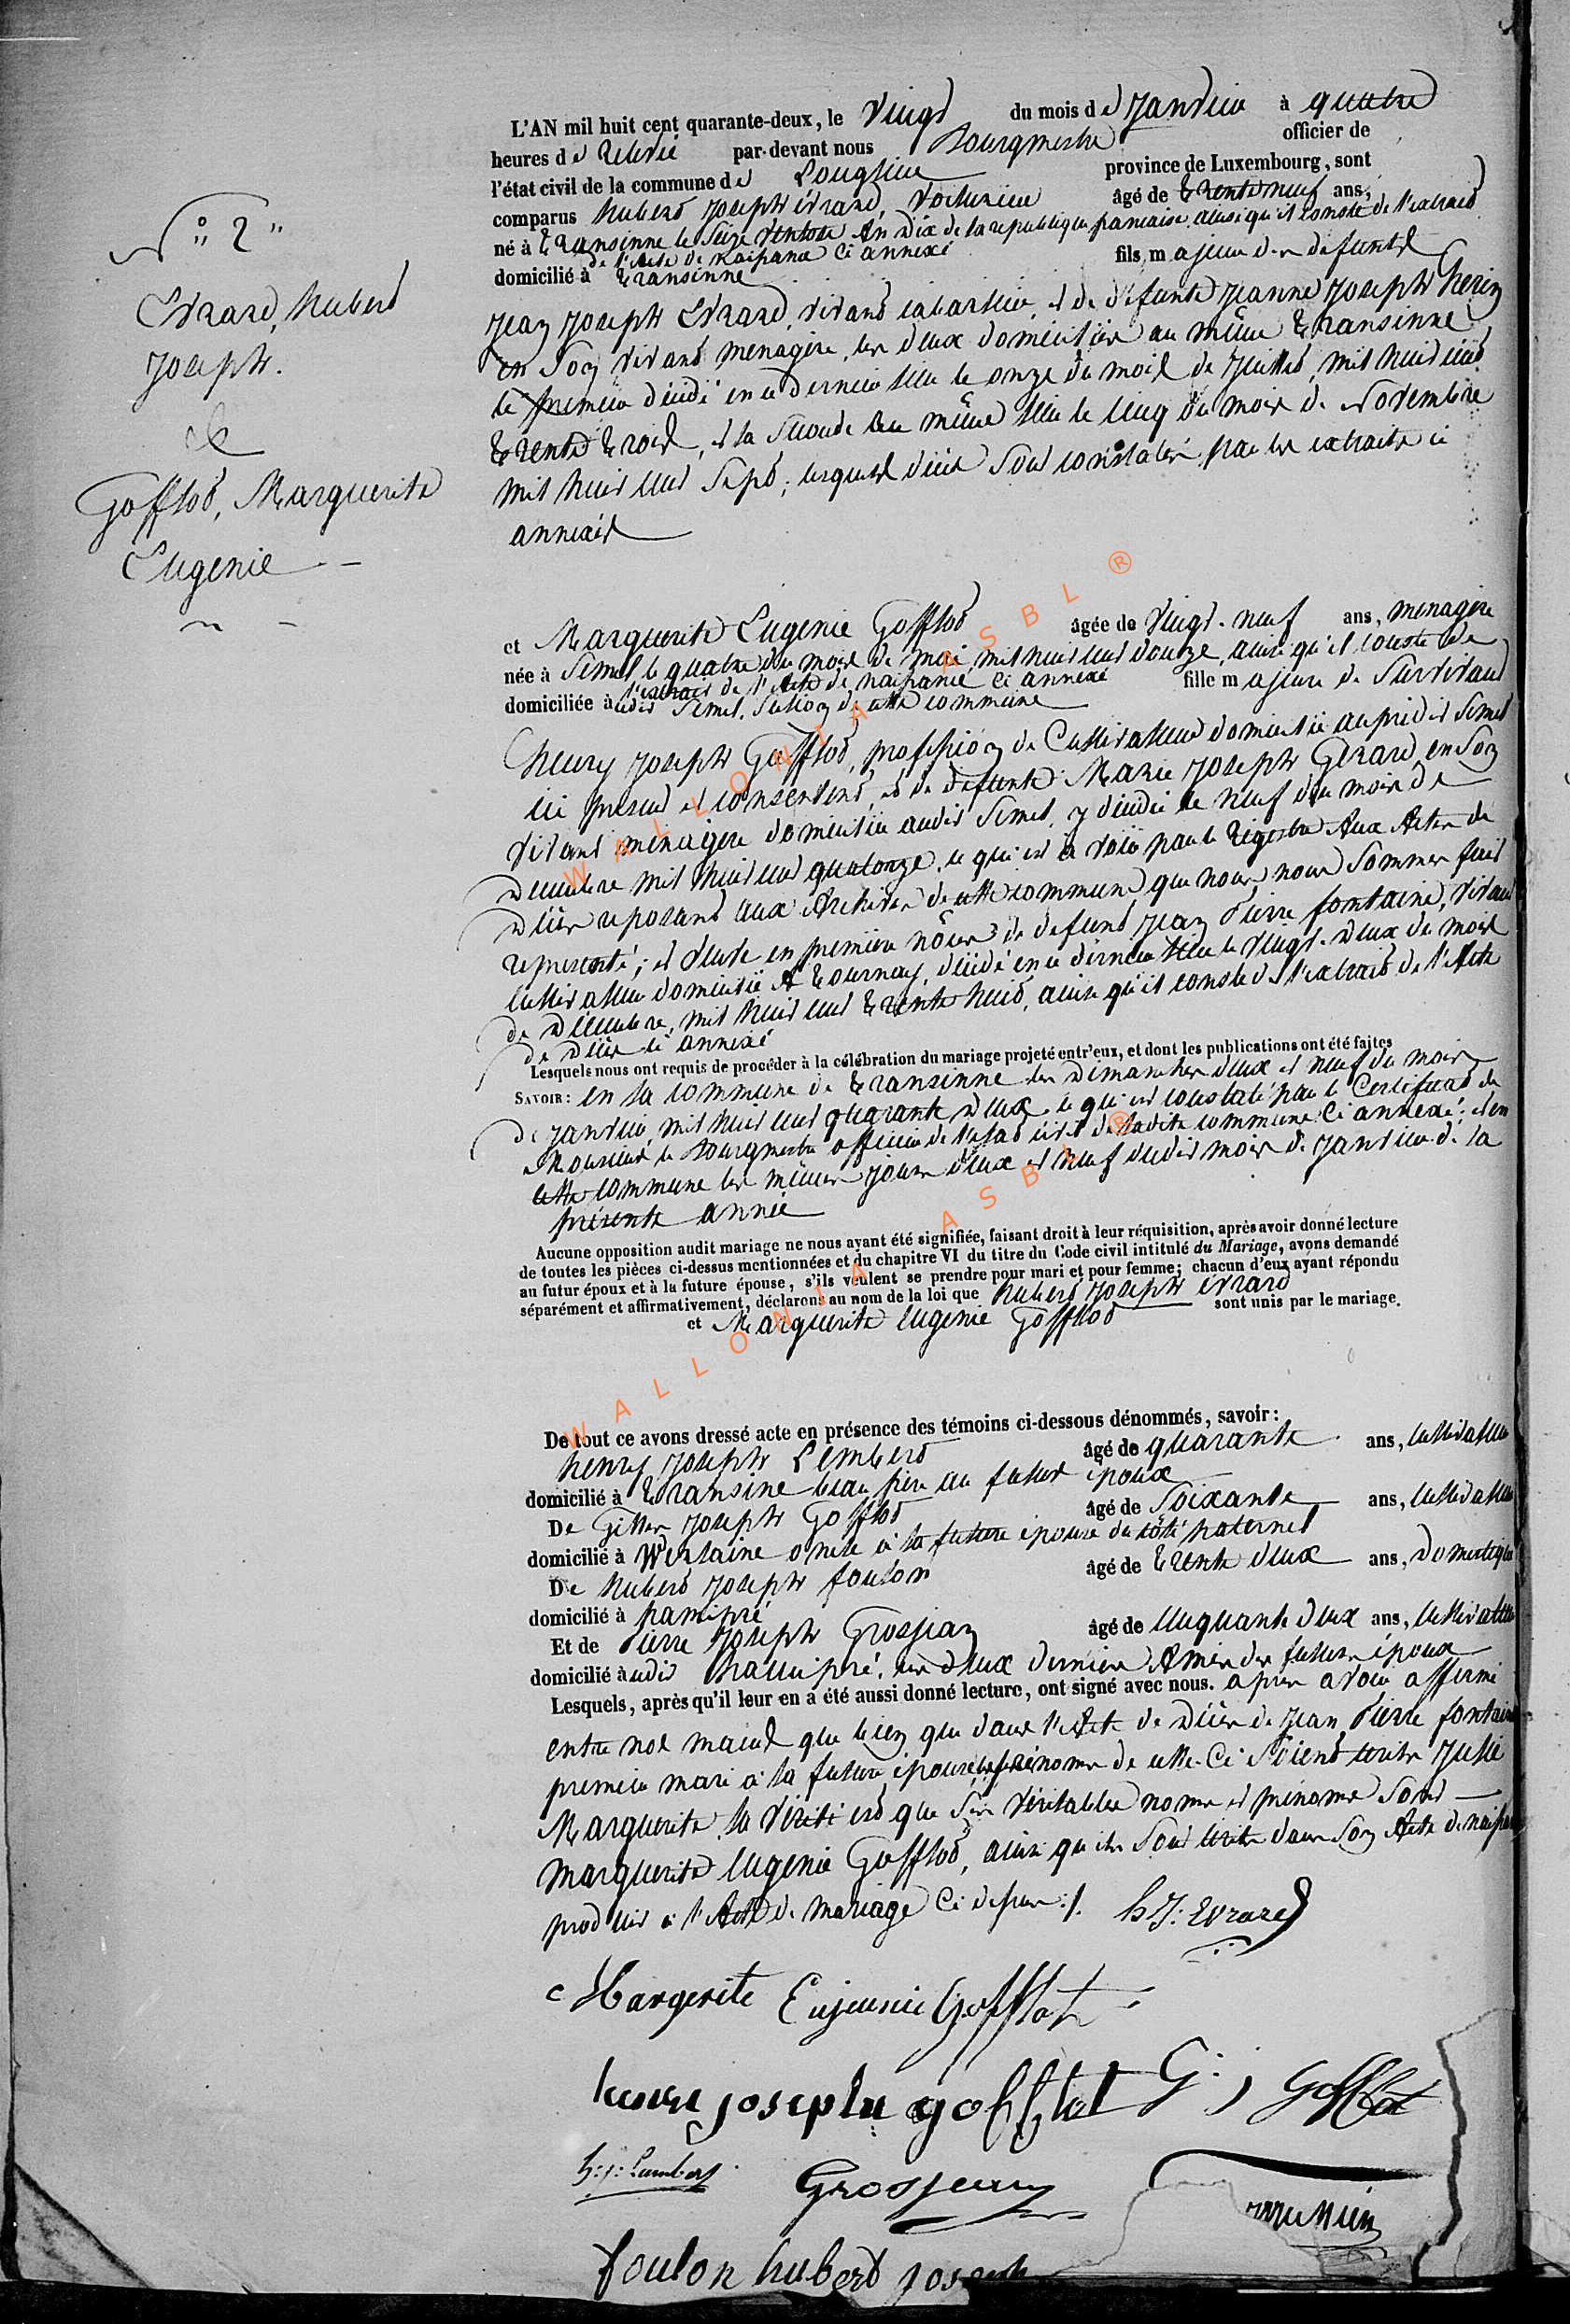 N° „ 2 „
Evrard, hubert
joseph.
&
Gofflot, Marguerite
Eugenie
L'AN mil huit cent quarante-deux, le Vingt du mois de janvier à quatre
heures de relevée par-devant nous Bourgmestre officier de
l'état civil de la commune de Longlier province de Luxembourg, sont
comparus hubert joseph évrard, voiturier âgé de trente neuf ans,
né à transinne le seize ventose An Dix de la republique francaise, ainsi qu'il conste de l'extrait
de l'Acte de naissance ci annexé
domicilié à transinne fils majeur des defunts
jean joseph Evrard, vivant cabartier, et de défunte jeanne joseph herin
en son vivant menagère, les deux domiciliés au même transinne
le premier décédé en ce dernier lieu le onze du mois de juillet, mil huit cent
trente trois, et la seconde au même lieu le cinq du mois de Novembre
mil huit cent sept; lesquels décès sont constatés par les extraits ci
annexés
et Marguerite Eugenie Gofflot âgée de vingt-neuf ans, menagère
née à Semel le quatre du mois de mai mil huit cent douze, ainsi qu'il conste de
l'extrait de l'Acte de naissance ci annexé
domiciliée à udit Semel, section de cette commune fille majeure de survivant
henry joseph Gofflot, profession de Cultivateur domicilié au prédit Semel
ici present et consentant, et de defunte Marie joseph Gerard en son
vivant ménagère domiciliée audit Semel, y décédée le neuf du mois de
Décembre mil huit cent quatorze, ce qui est à voir par le régistre Aux Actes de
Décès reposant aux Archives de cette commune que nous nous sommes fait
representé; et veuve en première nôces de defunt jean Pierre fontaine, vivant
cultivateur domicilié à tournay, décédé en ce dernier lieu le vingt-deux du mois
de Décembre, mil huit cent trente huit, ainsi qu'il conste de l'extrait de l'Acte
de Décès ci annexé
Lesquels nous ont requis de procéder à la célébration du mariage projeté entr'eux, et dont les publications ont été faites
SAVOIR: en la commune de transinne les Dimanches deux et neuf du mois
de janvier, mil huit cent quarante Deux, ce qui est constaté par le Certificat de
Monsieur le Bourgmestre officier de l'état civil de ladite commune ci annexé; et en
cette commune les mêmes jours deux et neuf dudit mois de janvier de la
présente année
Aucune opposition audit mariage ne nous ayant été signifiée, faisant droit à leur réquisition, après avoir donné lecture
de toutes les pièces ci-dessus mentionnées et du chapitre VI du titre du Code civil intitulé du Mariage, avons demandé
au futur époux et à la future épouse, s'ils veulent se prendre pour mari et pour femme; chacun d'eux ayant répondu
séparément et affirmativement, déclarons au nom de la loi que hubert joseph évrard
et Marguerite Eugenie Gofflot sont unis par le mariage.
De tout ce avons dressé acte en présence des témoins ci-dessous dénommés, savoir:
henry joseph Lambert âgé de quarante ans, cultivateur
domicilié à transine beau frère au futur époux
De Gilles joseph Gofflot âgé de soixante ans, cultivateur
domicilié à Verlaine oncle à la future épouse du côté paternel
De hubert joseph foulon âgé de trente deux ans, Domestique
domicilié à hamipré
Et de Pierre joseph Grosjean âgé de cinquante deux ans, cultivateur
domicilié à udit hamipré, les deux derniers Amis des futurs époux
Lesquels, après qu'il leur en a été aussi donné lecture, ont signé avec nous. après avoir affirmé
entre nos mains que bien que dans l'Acte de Décès de jean Pierre fontaine
premier mari à la future épouse les prénoms de celle-ci soient écrits julie
Marguerite, la vérité est que ses véritables noms et prénoms sont
marguerite Eugenie Gofflot, ainsi qu'ils sont écrits dans son Acte de naissance
produit à l'Acte de mariage ci dessus ./.
h J: Evrard
Margerite Eujeunie Gofflot
henri joseph gofflot G: J Gofflot
h: j: Lambert Grosjean
foulon hubert joseph
WALLONIA ASBL ®
WALLONIA ASBL ®